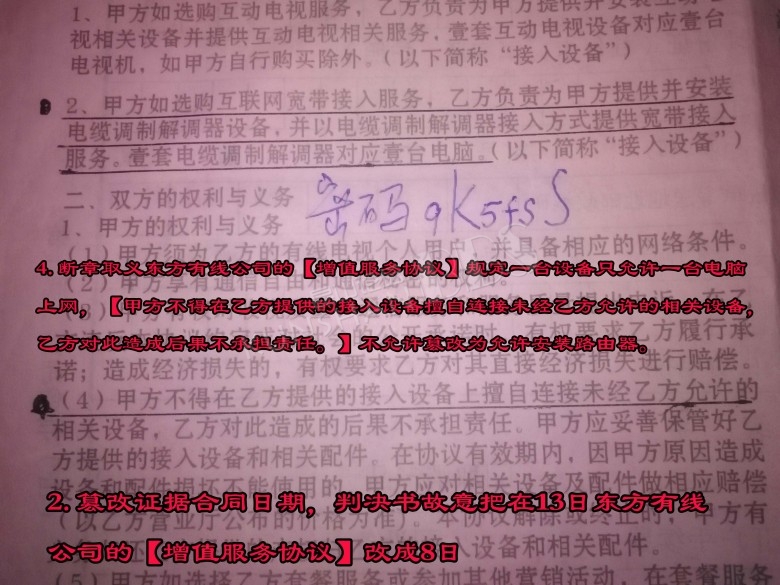 1、甲方如选购互动电视服务，乙方负责为甲方提供并安装互动电
视相关设备并提供互动电视相关服务，壹套互动电视设备对应壹台
电视机，如甲方自行购买除外。（以下简称“接入设备”）
2、甲方如选购互联网宽带接入服务，乙方负责为甲方提供并安装
电缆调制解调器设备，并以电缆调制解调器接入方式提供宽带接入
服务。壹套电缆调制解调器对应壹台电脑。（以下简称“接入设备”）
二、双方的权利与义务
密码 9K5fsS
1、甲方的权利与义务
（1）甲方须为乙方的有线电视个人用户，并具备相应的网络条件。
4.断章取义东方有线公司的【增值服务协议】规定一台设备只允许一台电脑
（2）甲方享有通信自由和通信秘密的权利。
上网，【甲方不得在乙方提供的接入设备擅自连接未经乙方允许的相关设备，
乙方对此造成后果不承担责任。】不允许篡改为允许安装路由器。
有权要求乙方履行承
诺；造成经济损失的，有权要求乙方对其直接经济损失进行赔偿。
（4）甲方不得在乙方提供的接入设备上擅自连接未经乙方允许的
相关设备，乙方对此造成的后果不承担责任。甲方应妥善保管好乙
方提供的接入设备和相关配件。在协议有效期内，因甲方原因造成
设备和配件损坏不能使用的，甲方应对相关设备及配件做相应赔偿
2.篡改证据合同日期，判决书故意把在13日东方有线
（以乙方营业厅公布的价格为准）。本协议解除或终止的，甲方有
公司的【增值服务协议】改成8日
接入设备和相关配件。
（5）甲方如选择乙方套餐服务或参加其他营销活动，在套餐服务